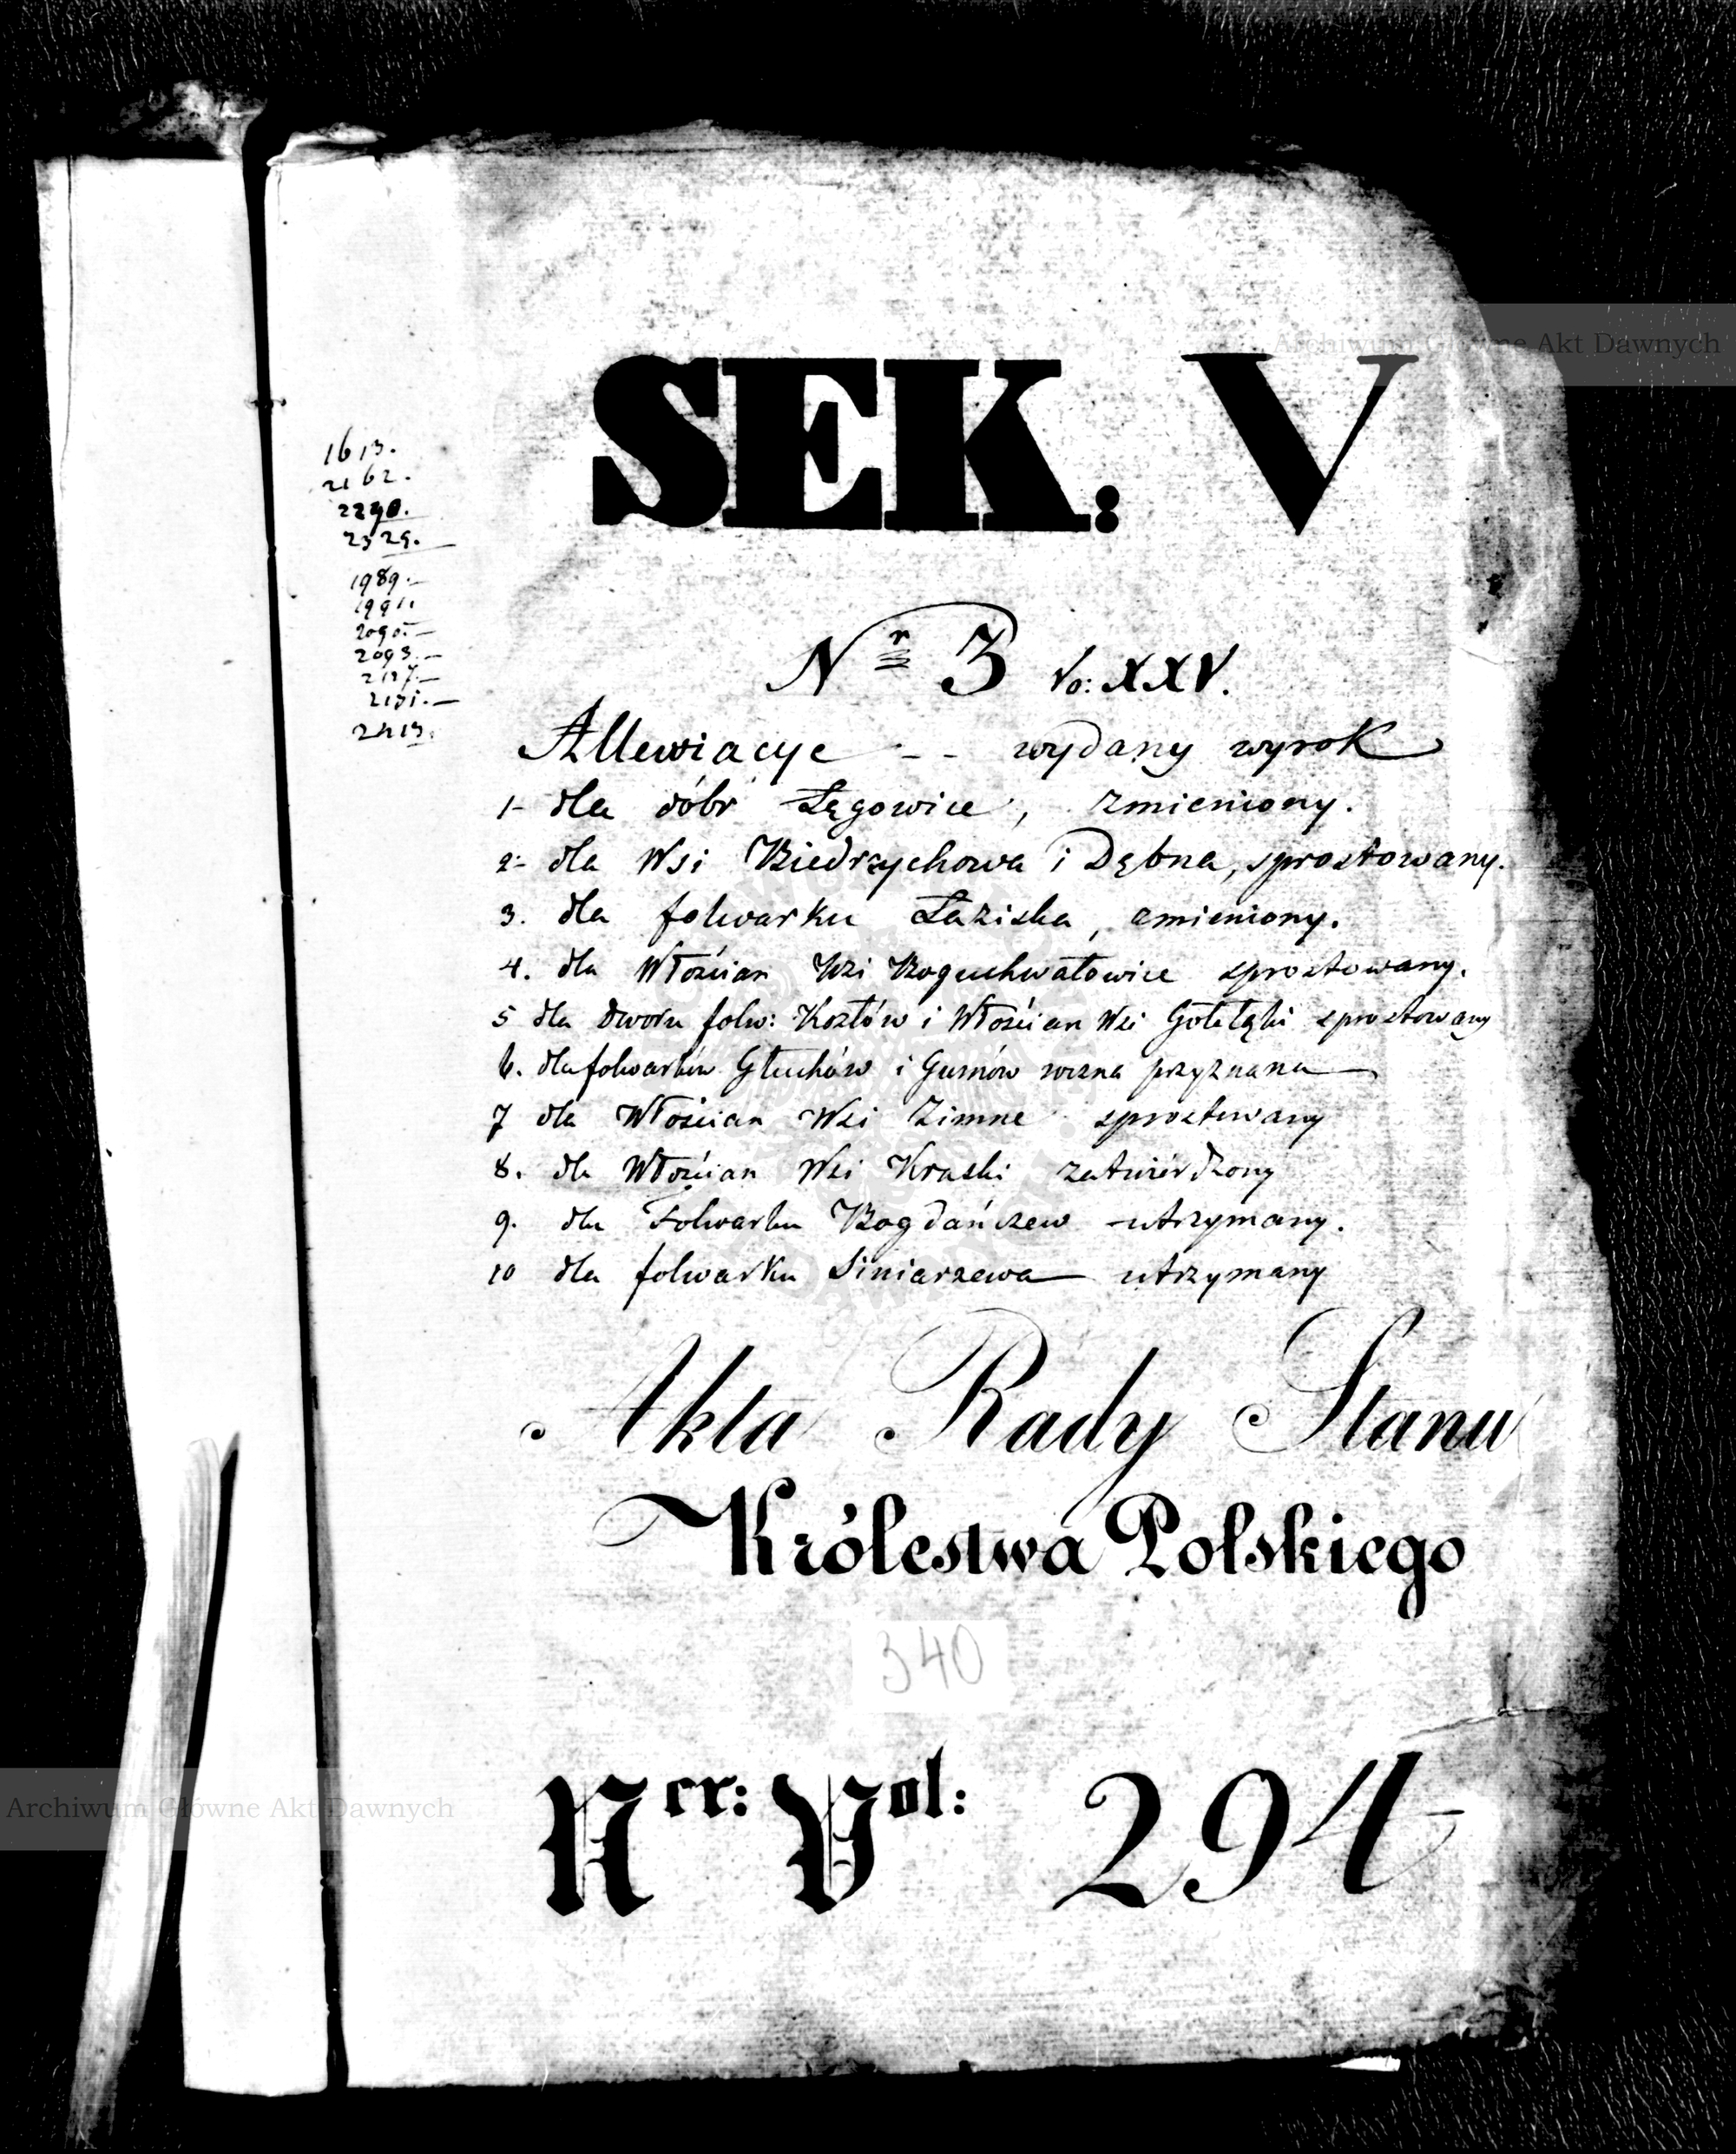 SEK: V
1613.
2162.
2290.
2329.
1989.
1991.
2090.
2093.
2137.
2131.
2413.
Nr 3 Vo: XXV.
Allewiacye - - wydany wyrok
1- dla dóbr Łęgowice, zmieniony.
2- dla Wsi Biedrzychowa i Dębna, sprostowany.
3. dla folwarku Łaziska, zmieniony.
4. dla Włościan Wsi Boguchwałowice sprostowany.
5 dla dworu folw: Kozłów i Włościan Wsi Gołełąki sprostowany
6. dla folwarków Głuchów i Gumów przyznana
7 dla Włościan Wsi Zimne sprostowany
8. dla Włościan Wsi Kraski zatwierdzony
9. dla Folwarku Bogdańczew utrzymany.
10 dla folwarku Siniarzewa utrzymany
Akta Rady Stanu
Królestwa Polskiego
340
Ner: Vol: 294
Archiwum Główne Akt Dawnych
Archiwum Główne Akt Dawnych